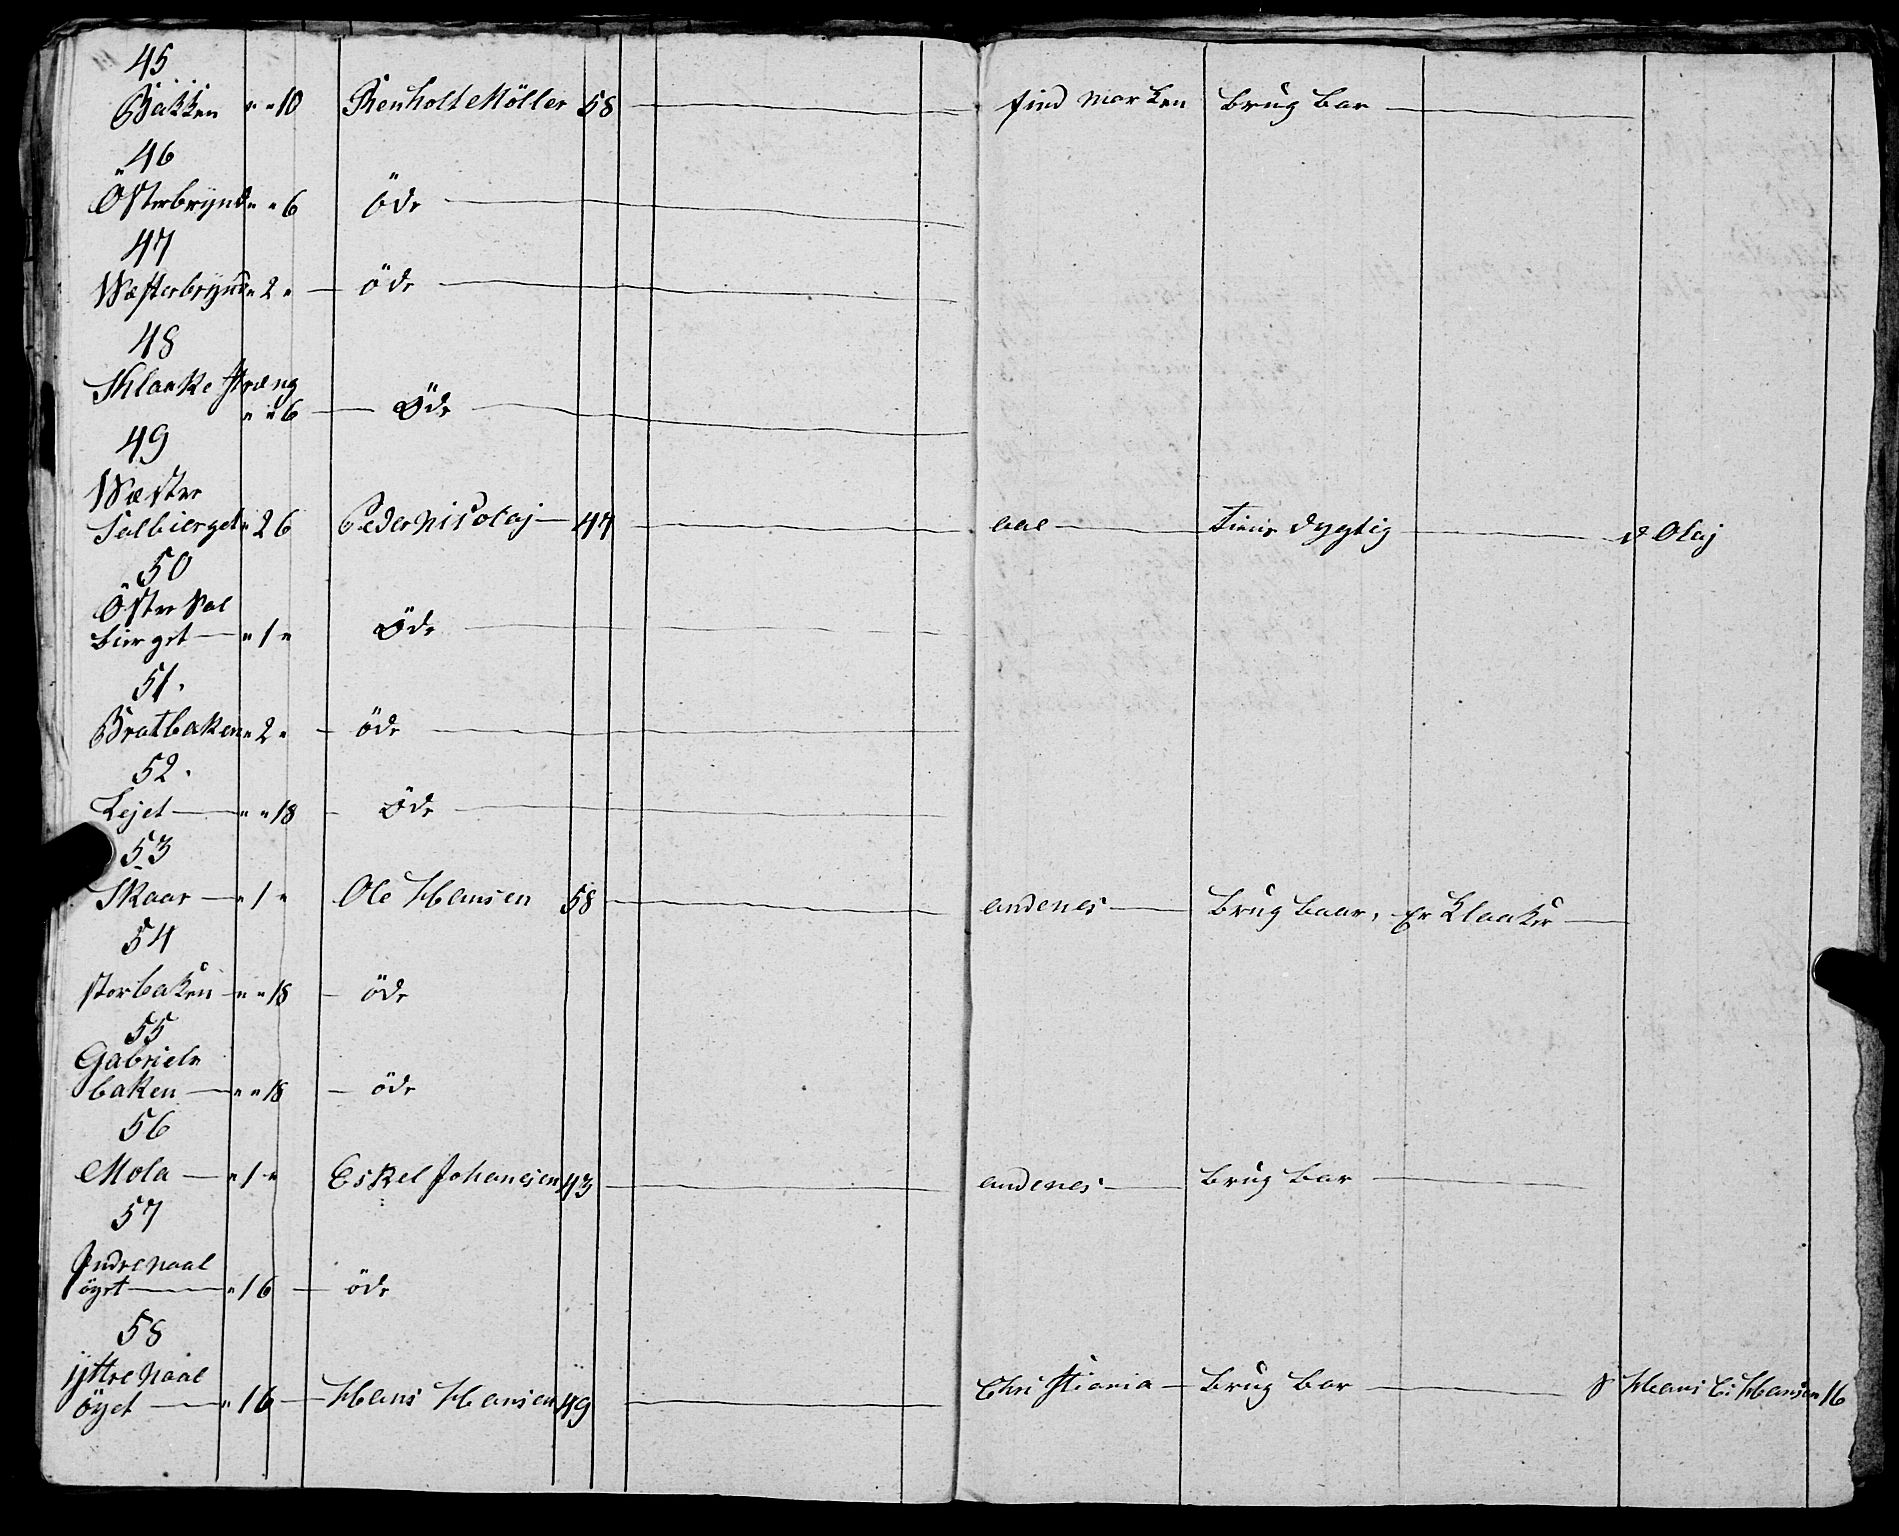 45
Bakken " " 10 Renholt Möller 58 find marken brug bar
46
Österbrynd " " 6 öde
47
Westerbrynd " 2 " öde
48
Klaake stræng
" " 6 Öde
49
Westre
Salbierget " 2 6 Peder Nicolaj 44 aae tienis dygtig Olaj
50
Östre Sal
bierget " 1 " Öde
51.
Bratbaken " 2 " öde
52.
Lejet " " 18 Öde
53
Skaar " 1 " Ole Hansen 58 andenes brug baar, Er Klaaker
54
storbaken " " 18 öde
55
Gabriels
baken " " 18 öde
56
Mola " 1 " Eskel Johanesen 43 andenes brug bar
57
Indre naal
öyet " 1 6 öde
58
yttre naal
öyet " 1 6 Hans Hansen 49 Christiania brug bar S Hans Hansen 16